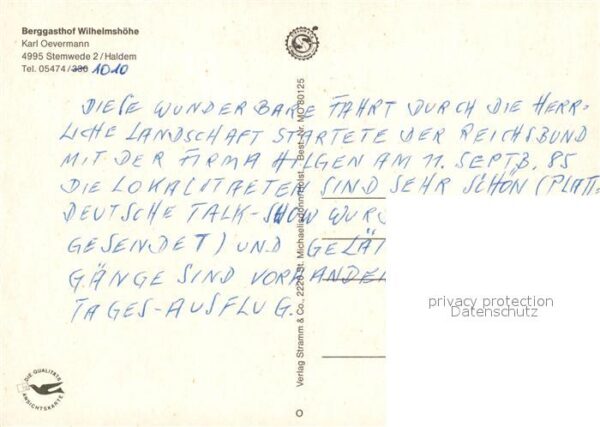 Berggasthof Wilhelmshöhe
Karl Oevermann
4995 Stemwede 2/Haldem
Tel. 05474/330 1010
DIESE WUNDERBARE FAHRT DURCH DIE HERR-
LICHE LANDSCHAFT STARTETE DER REICHSBUND
MIT DER FIRMA HILGEN AM 11. SEPTB. 85
DIE LOKALITAETEN SIND SEHR SCHÖN (PLATT-
DEUTSCHE TALK-SHOW
GESENDET) UND
GÄNGE SIND VORHANDEN
TAGES-AUSFLUG.
Verlag Stramm & Co., 2226 St. Michaelisdonn/Holst. Best.-Nr. MO 80125
DIE QUALITÄTS
ANSICHTSKARTE
privacy protection
Datenschutz